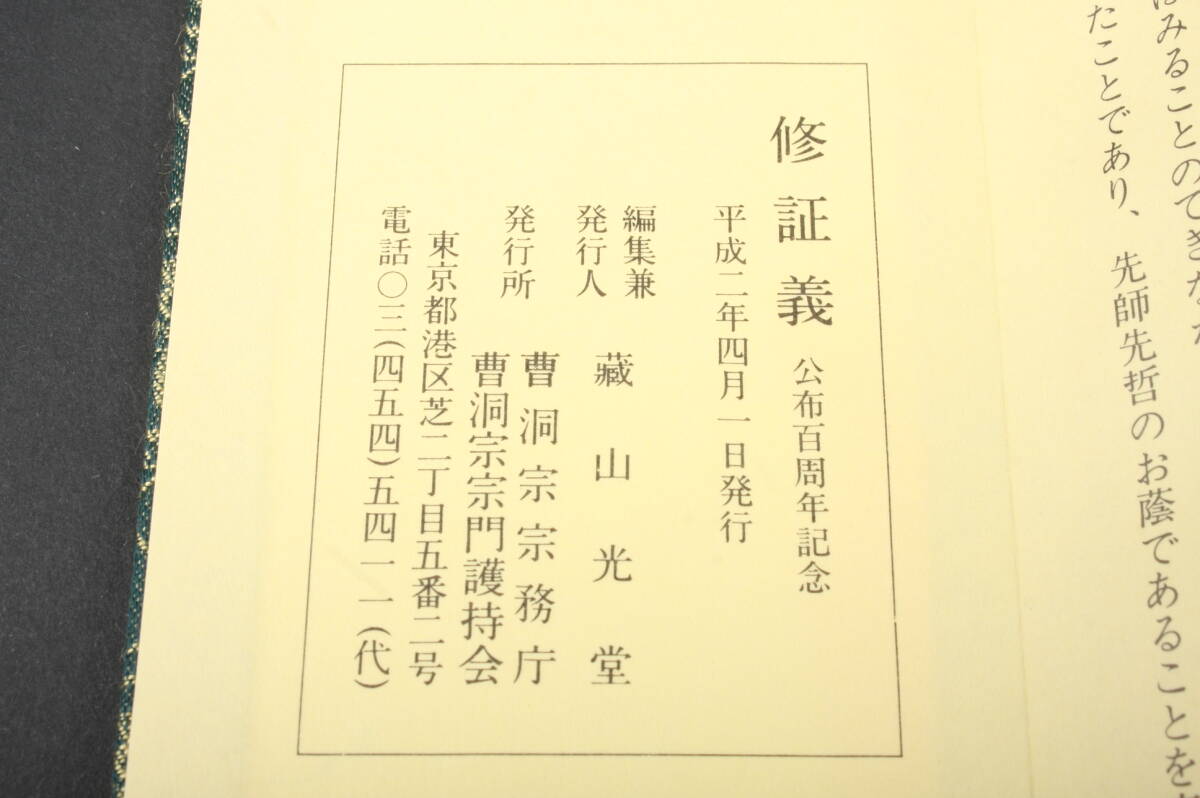 みることのできな
たことであり、先師先哲のお蔭であることを
修証義 公布百周年記念
平成二年四月一日発行
編集兼
発行人 藏山光堂
発行所 曹洞宗宗務庁
曹洞宗宗門護持会
東京都港区芝二丁目五番二号
電話〇三(四五四)五四一一(代)